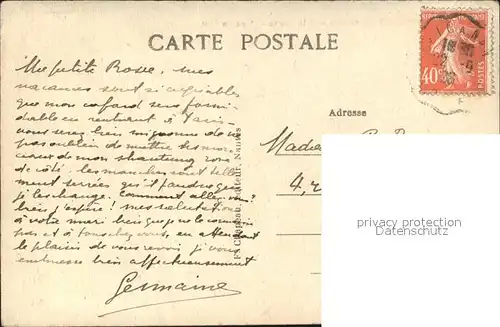 CARTE POSTALE
Ma petite Rosse, mes
vacances sont si agréables
que mon cafard sera formi-
dable en rentrant à Paris
vous serez bien mignonne de ne
pas oublier de mettre des mor-
ceaux de mon shantung rose
de côté. les manches sont telle-
ment serrées qu'il faudra que
je les change. Comment allez-vous?
bien j'espère! mes salutations
à votre mari bien que je ne le connaisse
pas et à vous chez vous, en attendant
le plaisir de vous revoir je vous
embrasse bien affectueusement
Germaine
Nantes
Adresse
Mada
4, r
40c
POSTES
privacy protection
Datenschutz